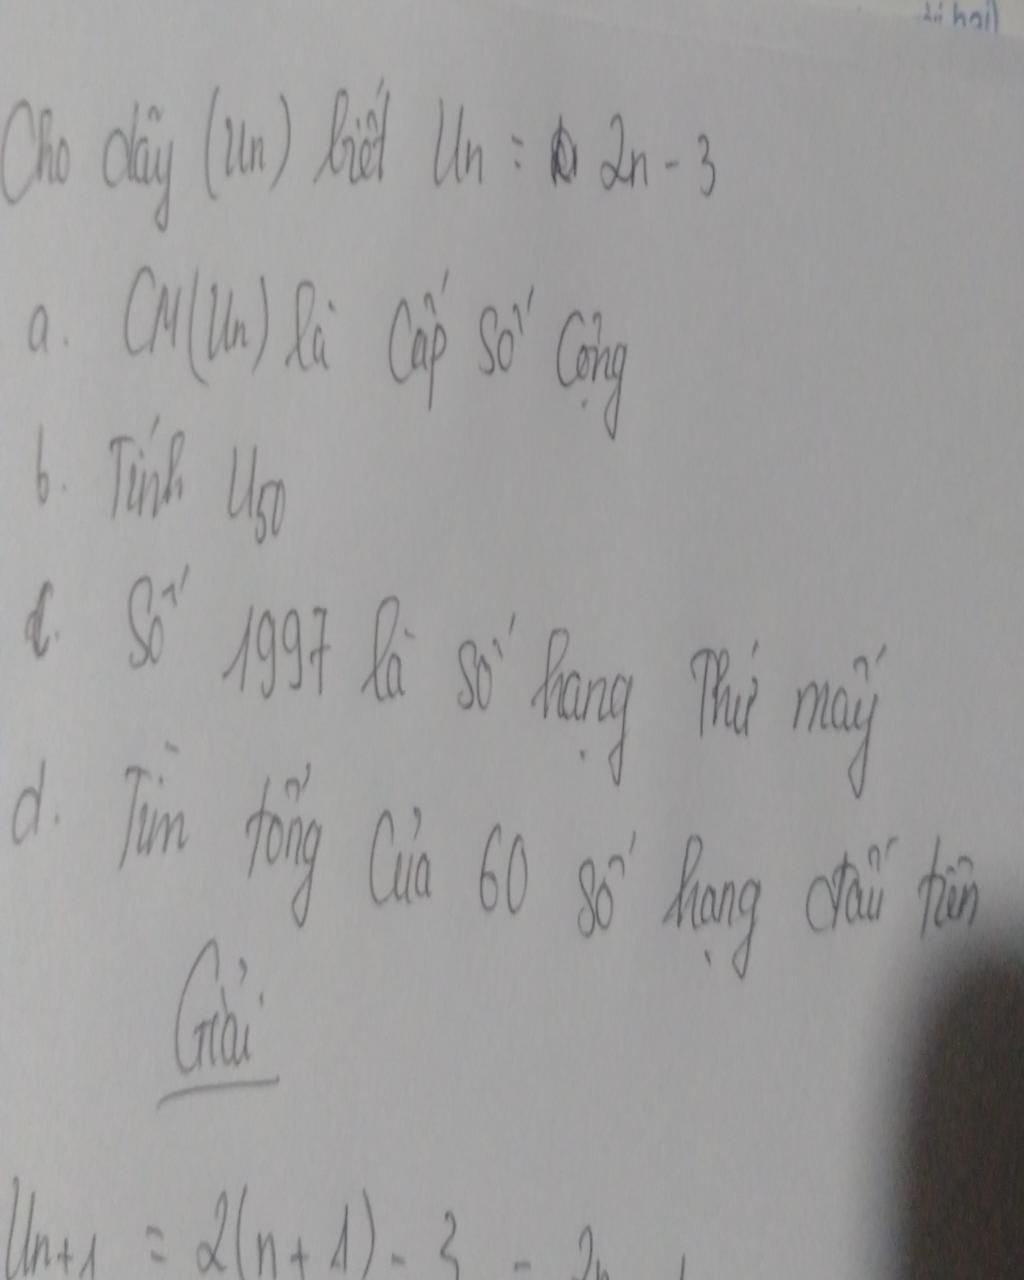 Cho dãy (Un) biết Un = 2n - 3
a. CM (Un) là cấp số cộng
b. Tính U50
c. Số 1997 là số hạng thứ mấy
d. Tìm tổng của 60 số hạng đầu tiên
Giải
Un+1 = 2(n+1) - 3 =